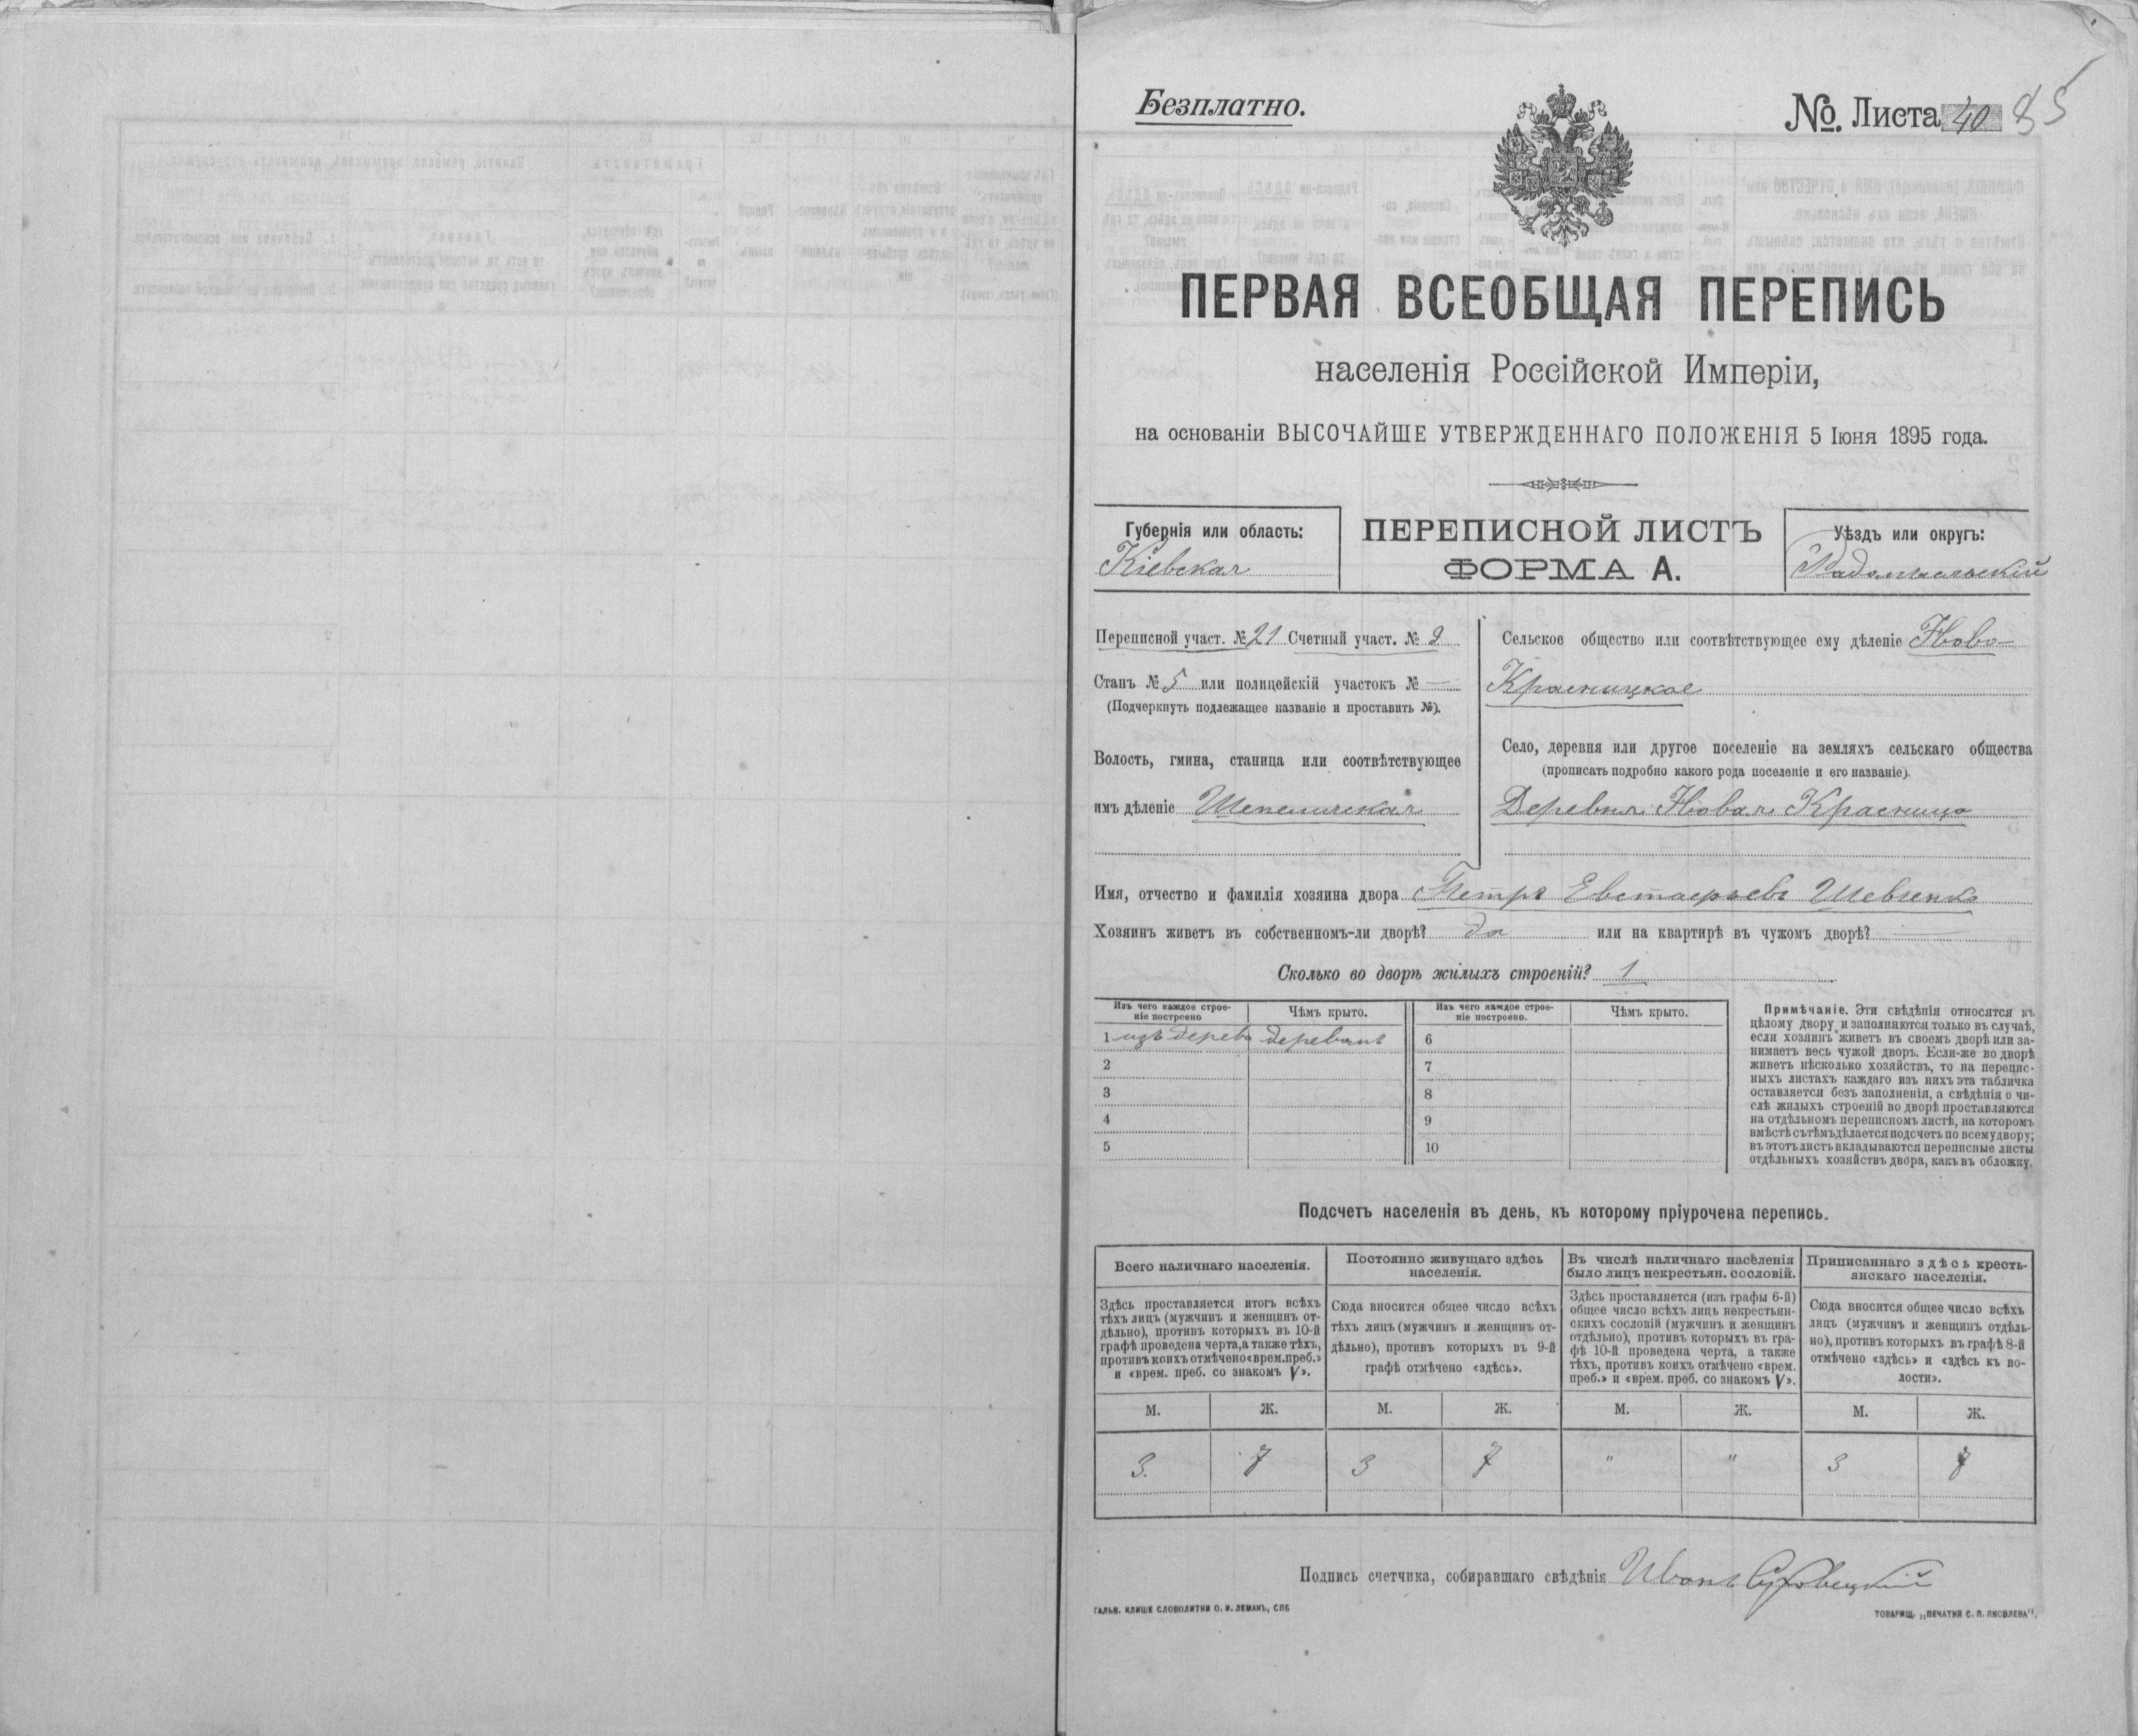 Безплатно.
№. Листа 40 85
ПЕРВАЯ ВСЕОБЩАЯ ПЕРЕПИСЬ
населенія Россійской Имперіи,
на основаніи ВЫСОЧАЙШЕ УТВЕРЖДЕННАГО ПОЛОЖЕНІЯ 5 Іюня 1895 года.
Губернія или область:
Кіевская
ПЕРЕПИСНОЙ ЛИСТЪ
ФОРМА А.
Уѣздъ или округъ:
Радомысльскій
Переписной участ. № 21 Счетный участ. № 9
Станъ № 5 или полицейскій участокъ № —
(Подчеркнуть подлежащее названіе и проставить №).
Волость, гмина, станица или соотвѣтствующее
имъ дѣленіе Шепеличская
Сельское общество или соотвѣтствующее ему дѣленіе Ново-
Красницкое
Село, деревня или другое поселеніе на земляхъ сельскаго общества
(прописать подробно какого рода поселеніе и его названіе).
Деревня Новая Красница
Имя, отчество и фамилія хозяина двора Петръ Евстафьевъ Шевченко
Хозяинъ живетъ въ собственномъ-ли дворѣ? да или на квартирѣ въ чужомъ дворѣ? —
Сколько во дворѣ жилыхъ строеній? 1
Изъ чего каждое строе-
ніе построено
Чѣмъ крыто.
Изъ чего каждое строе-
ніе построено.
Чѣмъ крыто.
1 изъ дерева деревомъ 6
2 7
3 8
4 9
5 10
Примѣчаніе. Эти свѣдѣнія относятся къ
цѣлому двору и заполняются только въ случаѣ,
если хозяинъ живетъ въ своемъ дворѣ или за-
нимаетъ весь чужой дворъ. Если-же во дворѣ
живетъ нѣсколько хозяйствъ, то на перепис-
ныхъ листахъ каждаго изъ нихъ эта табличка
оставляется безъ заполненія, а свѣдѣнія о чи-
слѣ жилыхъ строеній во дворѣ проставляются
на отдѣльномъ переписномъ листѣ, на которомъ
вмѣстѣ съ тѣмъ дѣлается подсчетъ по всему двору;
въ этотъ листъ вкладываются переписные листы
отдѣльныхъ хозяйствъ двора, какъ въ обложку.
Подсчетъ населенія въ день, къ которому пріурочена перепись.
Всего наличнаго населенія.
Здѣсь проставляется итогъ всѣхъ
тѣхъ лицъ (мужчинъ и женщинъ от-
дѣльно), противъ которыхъ въ 10-й
графѣ проведена черта, а также тѣхъ,
противъ коихъ отмѣчено «врем. преб.»
и «врем. преб. со знакомъ V».
Постоянно живущаго здѣсь
населенія.
Сюда вносится общее число всѣхъ
тѣхъ лицъ (мужчинъ и женщинъ от-
дѣльно), противъ которыхъ въ 9-й
графѣ отмѣчено «здѣсь».
Въ числѣ наличнаго населенія
было лицъ некрестьян. сословій.
Здѣсь проставляется (изъ графы 6-й)
общее число всѣхъ лицъ некрестьян-
скихъ сословій (мужчинъ и женщинъ
отдѣльно), противъ которыхъ въ гра-
фѣ 10-й проведена черта, а также
тѣхъ, противъ коихъ отмѣчено «врем.
преб.» и «врем. преб. со знакомъ V».
Приписаннаго здѣсь кресть-
янскаго населенія.
Сюда вносится общее число всѣхъ
лицъ (мужчинъ и женщинъ отдѣль-
но), противъ которыхъ въ графѣ 8-й
отмѣчено «здѣсь» и «здѣсь къ во-
лости».
М. Ж. М. Ж. М. Ж. М. Ж.
3. 7 3 7 " " 3 7
Подпись счетчика, собиравшаго свѣдѣнія Иванъ
ГАЛЬВ. КЛИШЕ СЛОВОЛИТНИ О. И. ЛЕМАНЪ, СПБ
ТОВАРИЩ. „ПЕЧАТНЯ С. П. ЯКОВЛЕВА".